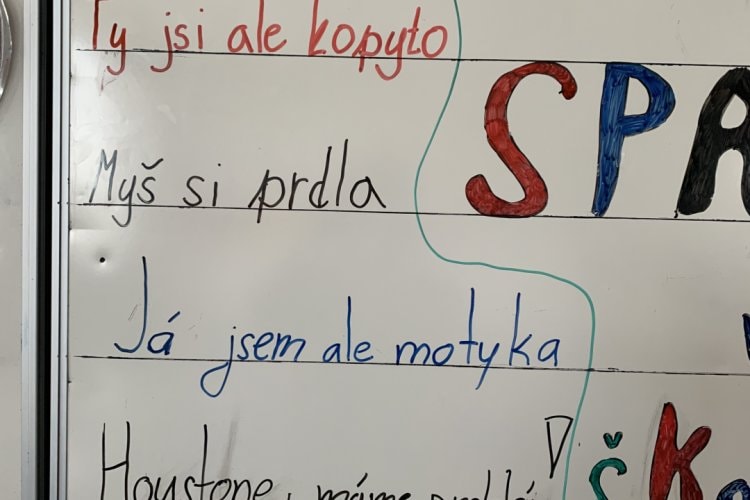 Ty jsi ale kopyto
SPA
Myš si prdla
Já jsem ale motyka
Houstone, máme
Šk